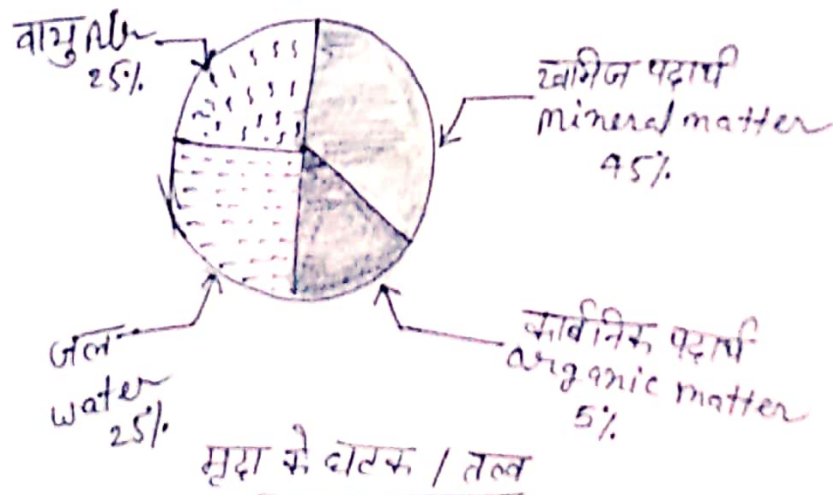 वायु Air
25%
खनिज पदार्थ
mineral matter
45%
जल
water
25%
कार्बनिक पदार्थ
organic matter
5%
मृदा के घटक / तत्व